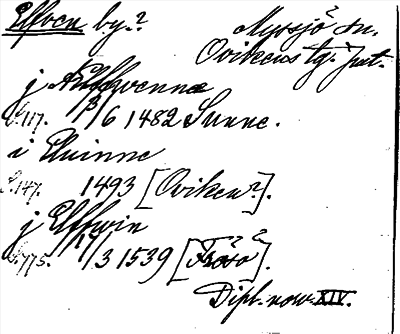 Elfven by.? Myssjö sn.
Ovikens tg. Jmt.
j Ælffwenne
S. 117. 13/6 1482 Sunne.
i Eluinne
S. 147. 1493 [Oviken?].
j Elffwin
S. 775. 17/3 1539 [Frösö?].
Dipl. norv. XIV.